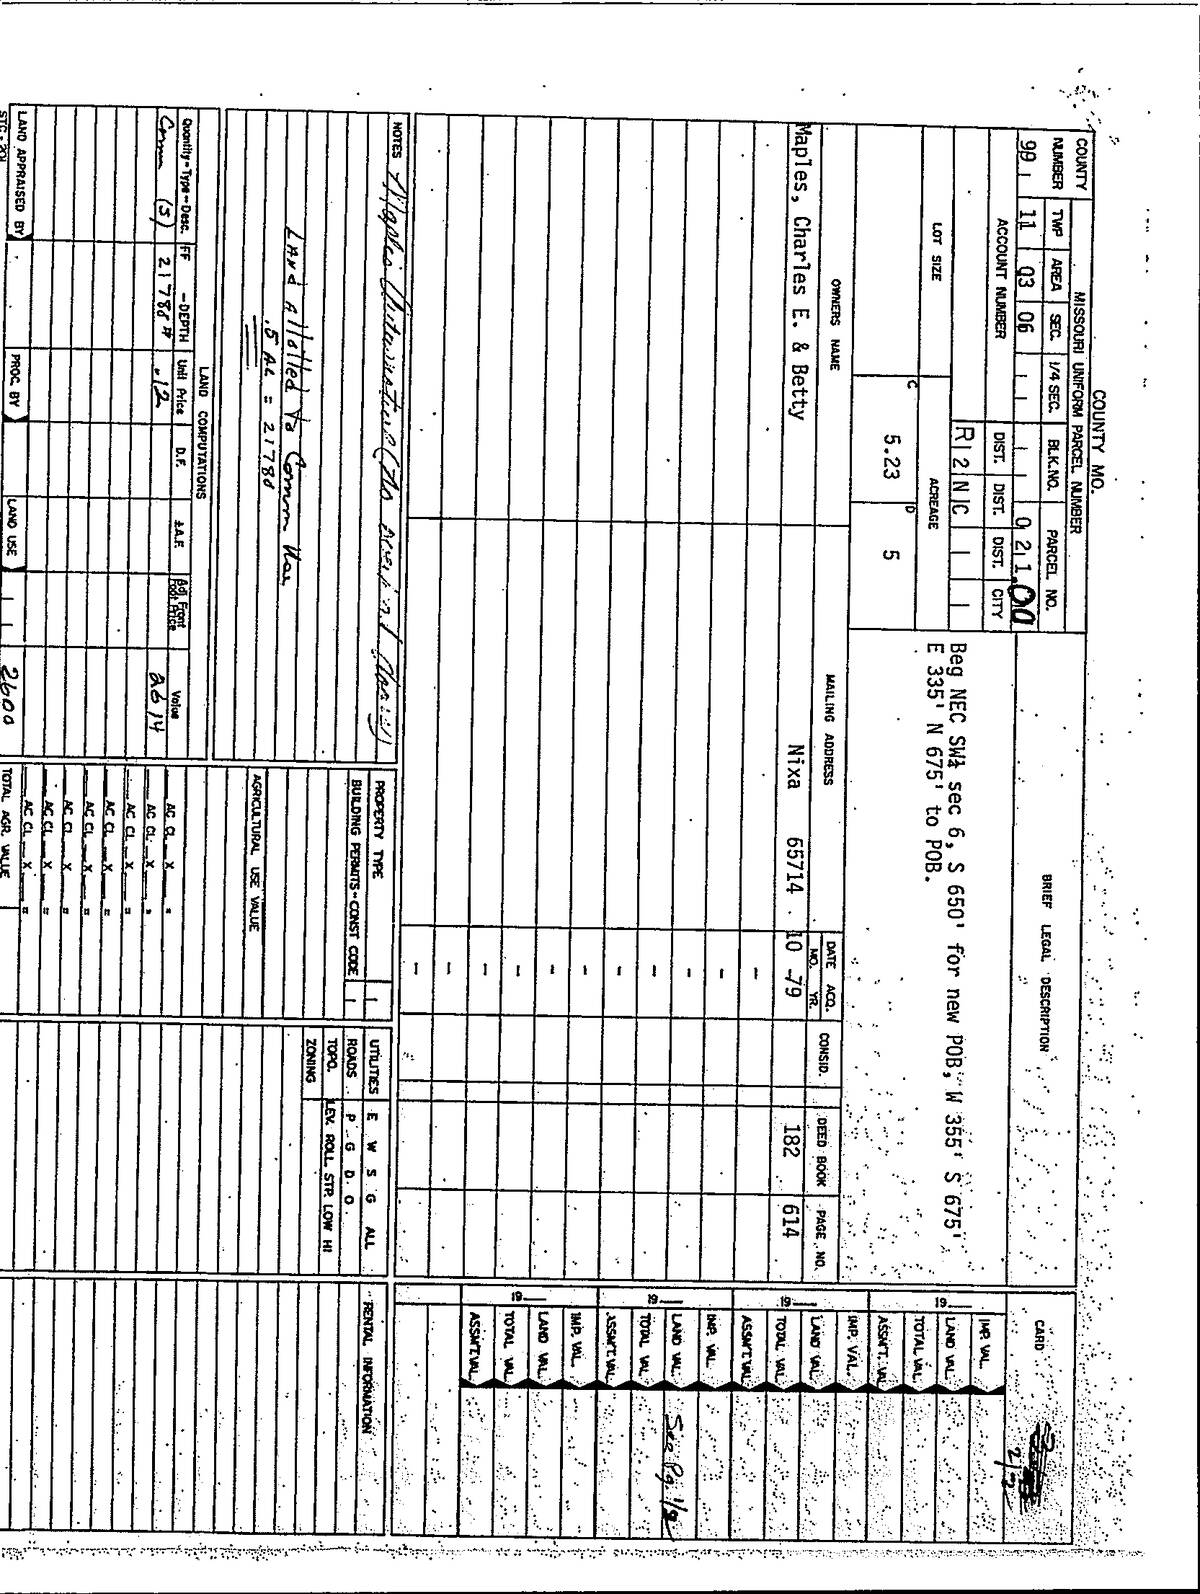 COUNTY MO.
MISSOURI UNIFORM PARCEL NUMBER
COUNTY NUMBER TWP AREA SEC. 1/4 SEC. BLK.NO. PARCEL NO.
99 11 03 06 0 2 1.00
ACCOUNT NUMBER DIST. DIST. DIST. CITY
R 2 N C
LOT SIZE ACREAGE
C 5.23 D 5
BRIEF LEGAL DESCRIPTION
Beg NEC SW¼ sec 6, S 650' for new POB, W 355' S 675'
E 335' N 675' to POB.
CARD
2/2
OWNERS NAME MAILING ADDRESS DATE ACQ. MO. YR. CONSID. DEED BOOK PAGE NO.
Maples, Charles E. & Betty Nixa 65714 10 -79 182 614
19
IMP. VAL.
LAND VAL.
TOTAL VAL.
ASSM'T. VAL.
19
IMP. VAL.
LAND VAL.
TOTAL VAL.
ASSM'T. VAL.
19
IMP. VAL.
LAND VAL. See Pg. 1/2
TOTAL VAL.
ASSM'T. VAL.
19
IMP. VAL.
LAND VAL.
TOTAL VAL.
ASSM'T. VAL.
NOTES Maples
Land Allotted To Comm Use
.5 AC = 21780
PROPERTY TYPE
BUILDING PERMITS - CONST CODE
UTILITIES E W S G ALL
ROADS P G D O
TOPO. LEV. ROLL. STP. LOW HI
ZONING
RENTAL INFORMATION
LAND COMPUTATIONS
Quantity - Type - Desc. FF - DEPTH Unit Price D.F. ±A.F. Adj. Front Foot Price Value
Comm (S) 21780# .12 2614
LAND APPRAISED BY PROC. BY LAND USE 2600
AGRICULTURAL USE VALUE
AC CL X =
AC CL X =
AC CL X =
AC CL X =
AC CL X =
AC CL X =
AC CL X =
TOTAL AGR. VALUE